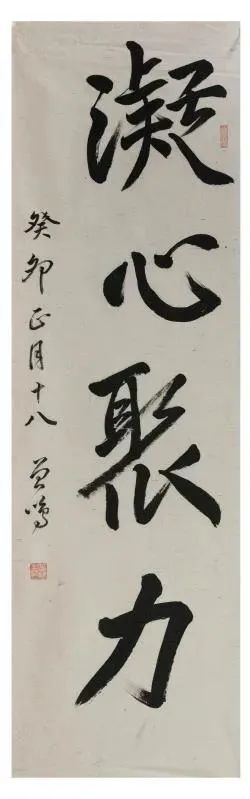 凝心聚力
癸卯正月十八